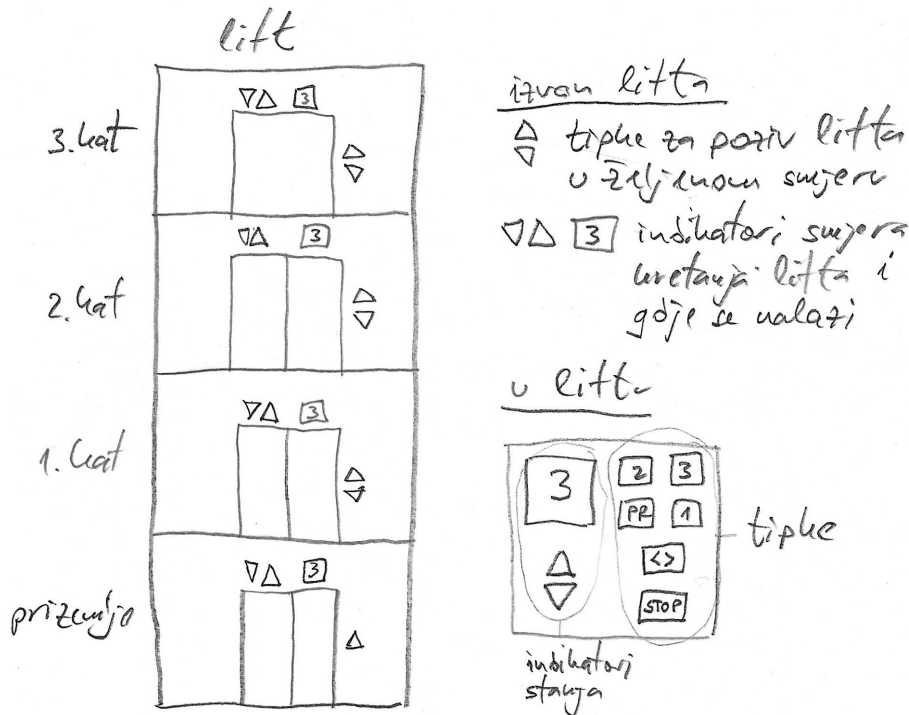 lift
3. kat
3
2. kat
3
1. kat
3
prizemlje
3
izvan lifta
tipke za poziv lifta
u željenom smjeru
3 indikatori smjera
kretanja lifta i
gdje se nalazi
u liftu
3
2 3
PR 1
<>
STOP
tipke
indikatori
stanja